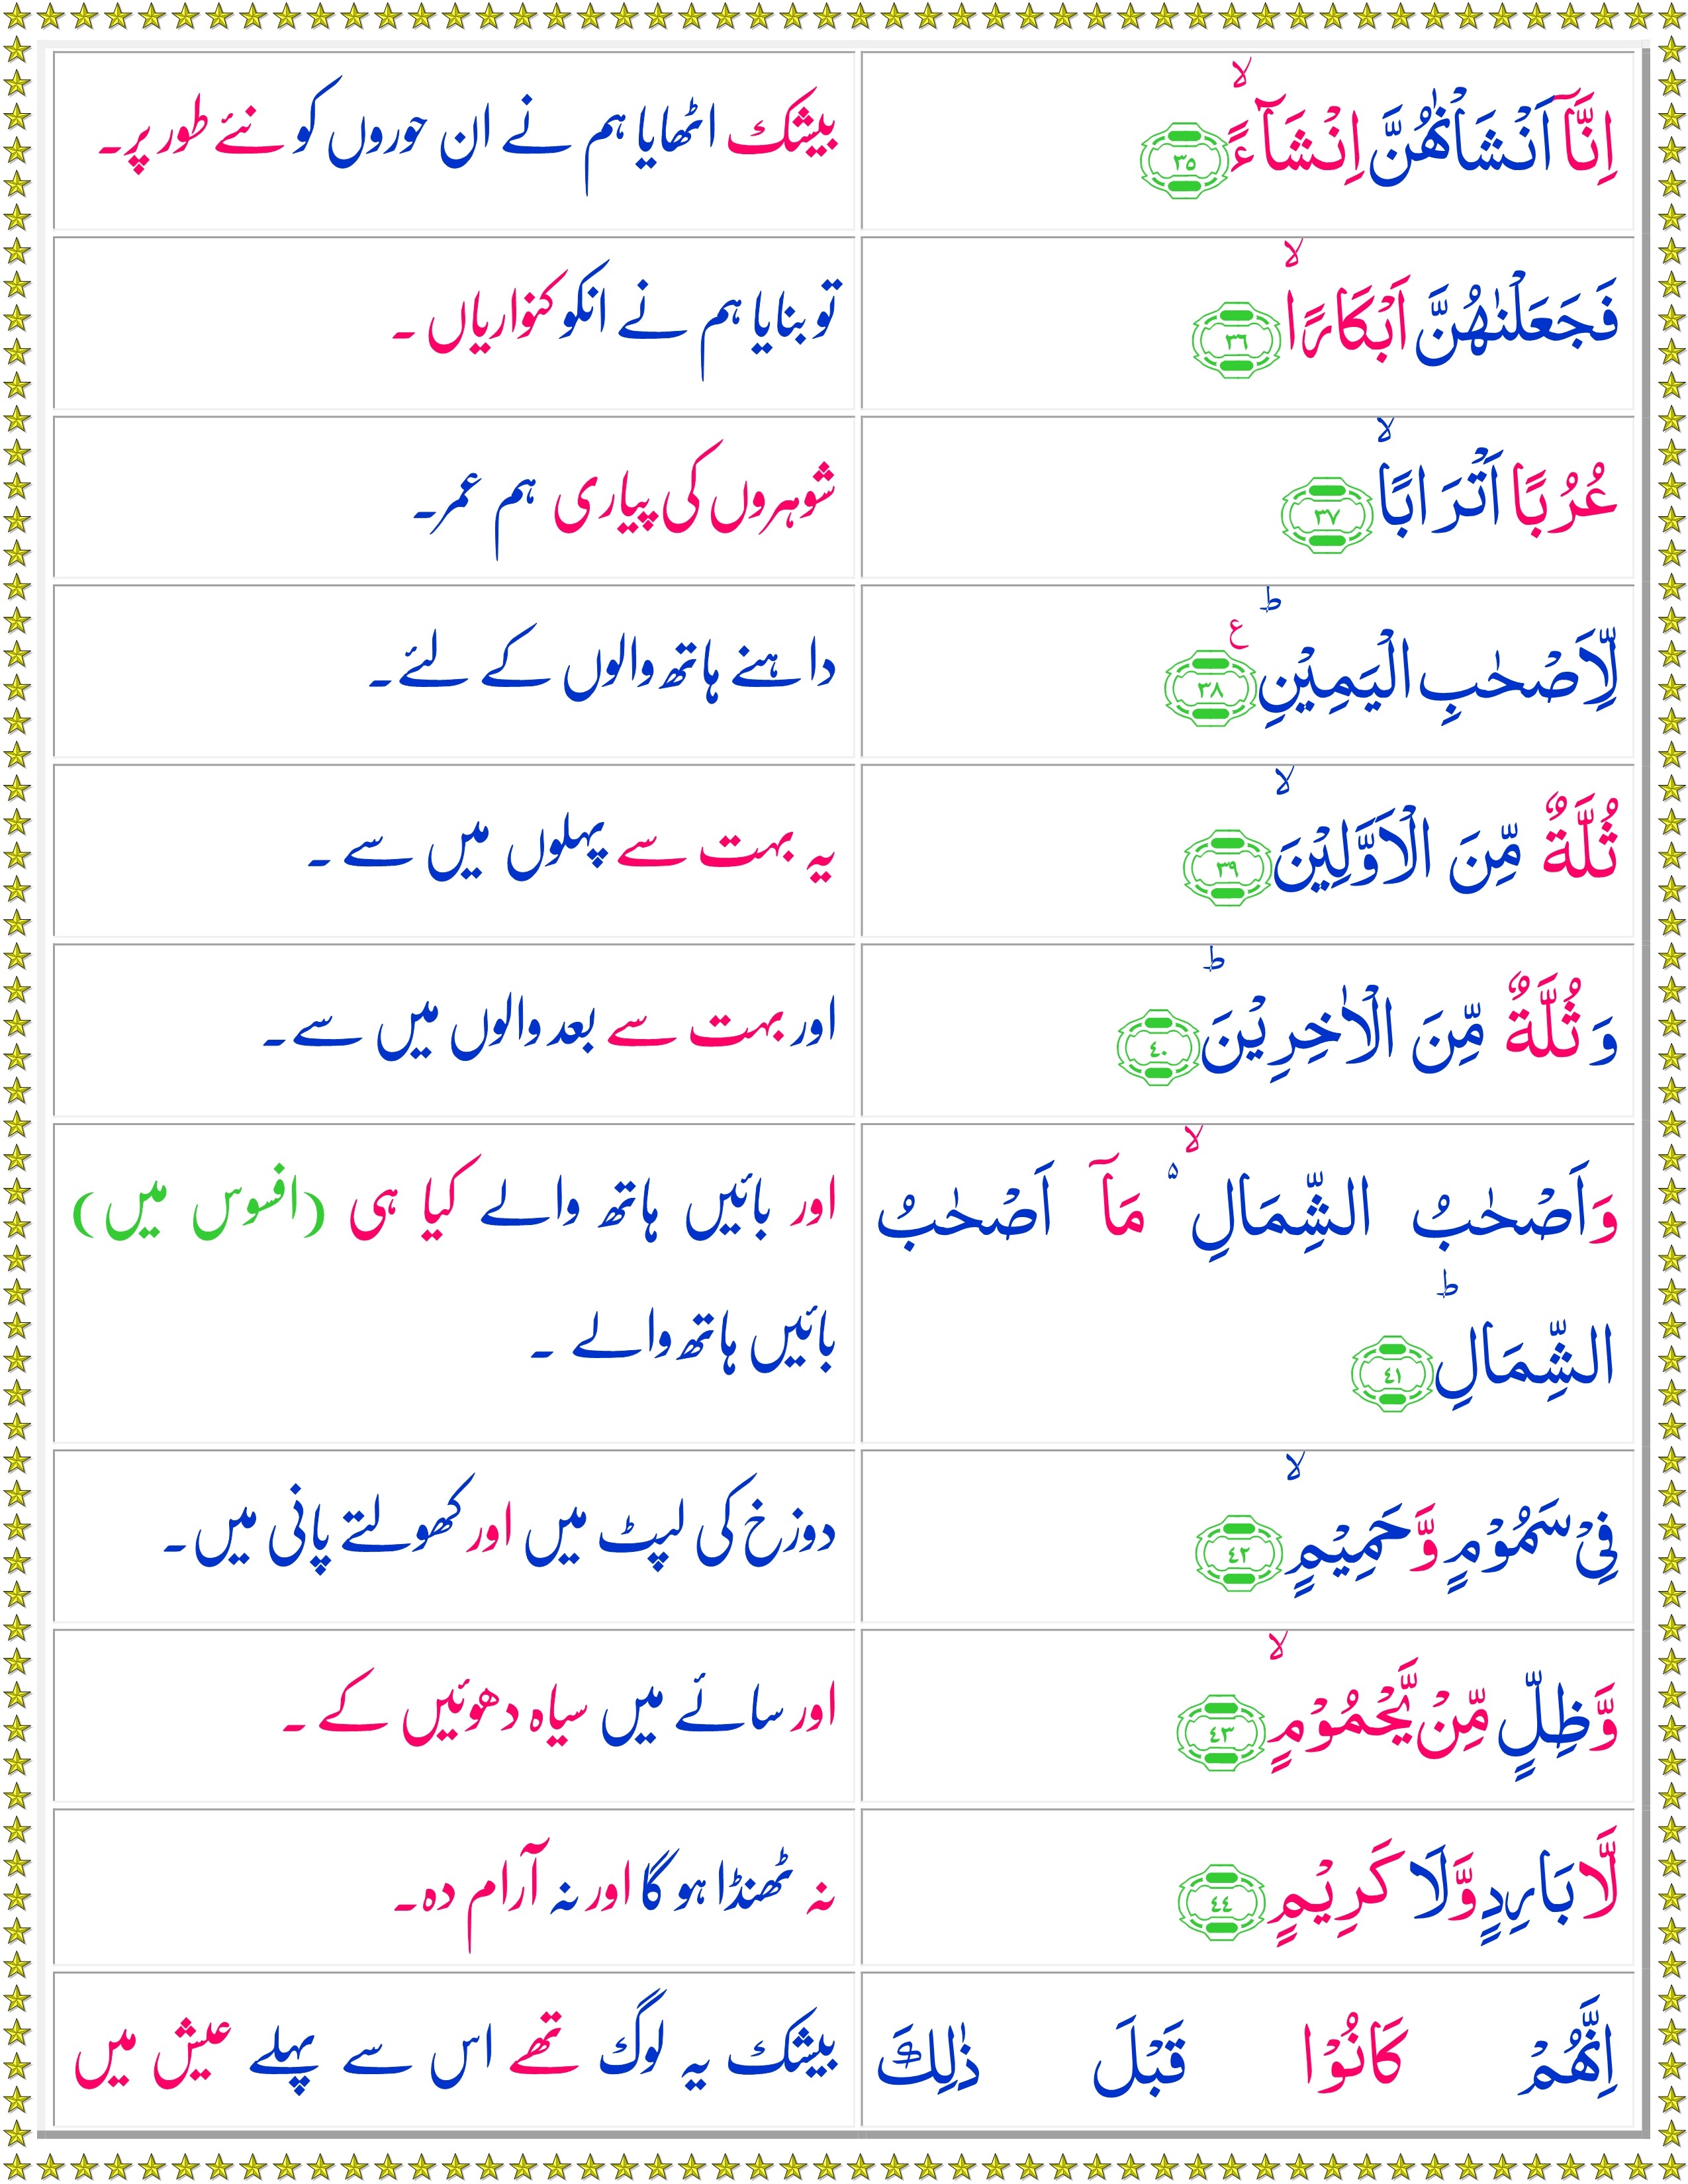 اِنَّاۤ اَنْشَاْنٰهُنَّ اِنْشَآءً ۙ ﴿٣٥﴾
بیشک اٹھایا ہم نے ان حوروں کو نئے طور پر۔
فَجَعَلْنٰهُنَّ اَبْكَارًا ۙ ﴿٣٦﴾
تو بنایا ہم نے انکو کنواریاں ۔
عُرُبًا اَتْرَابًا ۙ ﴿٣٧﴾
شوہروں کی پیاری ہم عمر۔
لِّاَصْحٰبِ الْيَمِيْنِ ؕ ع ﴿٣٨﴾
داہنے ہاتھ والوں کے لئے۔
ثُلَّةٌ مِّنَ الْاَوَّلِيْنَ ۙ ﴿٣٩﴾
یہ بہت سے پہلوں میں سے ۔
وَ ثُلَّةٌ مِّنَ الْاٰخِرِيْنَ ؕ ﴿٤٠﴾
اور بہت سے بعد والوں میں سے۔
وَاَصْحٰبُ الشِّمَالِ ۙ۬ مَاۤ اَصْحٰبُ
الشِّمَالِ ؕ ﴿٤١﴾
اور بائیں ہاتھ والے کیا ہی (افسوس میں)
بائیں ہاتھ والے ۔
فِىْ سَمُوْمٍ وَّحَمِيْمٍ ۙ ﴿٤٢﴾
دوزخ کی لپٹ میں اور کھولتے پانی میں۔
وَّظِلٍّ مِّنْ يَّحْمُوْمٍ ۙ ﴿٤٣﴾
اور سائے میں سیاہ دھوئیں کے ۔
لَّا بَارِدٍ وَّلَا كَرِيْمٍ ﴿٤٤﴾
نہ ٹھنڈا ہو گا اور نہ آرام دہ۔
اِنَّهُمْ كَانُوْا قَبْلَ ذٰلِكَ
بیشک یہ لوگ تھے اس سے پہلے عیش میں